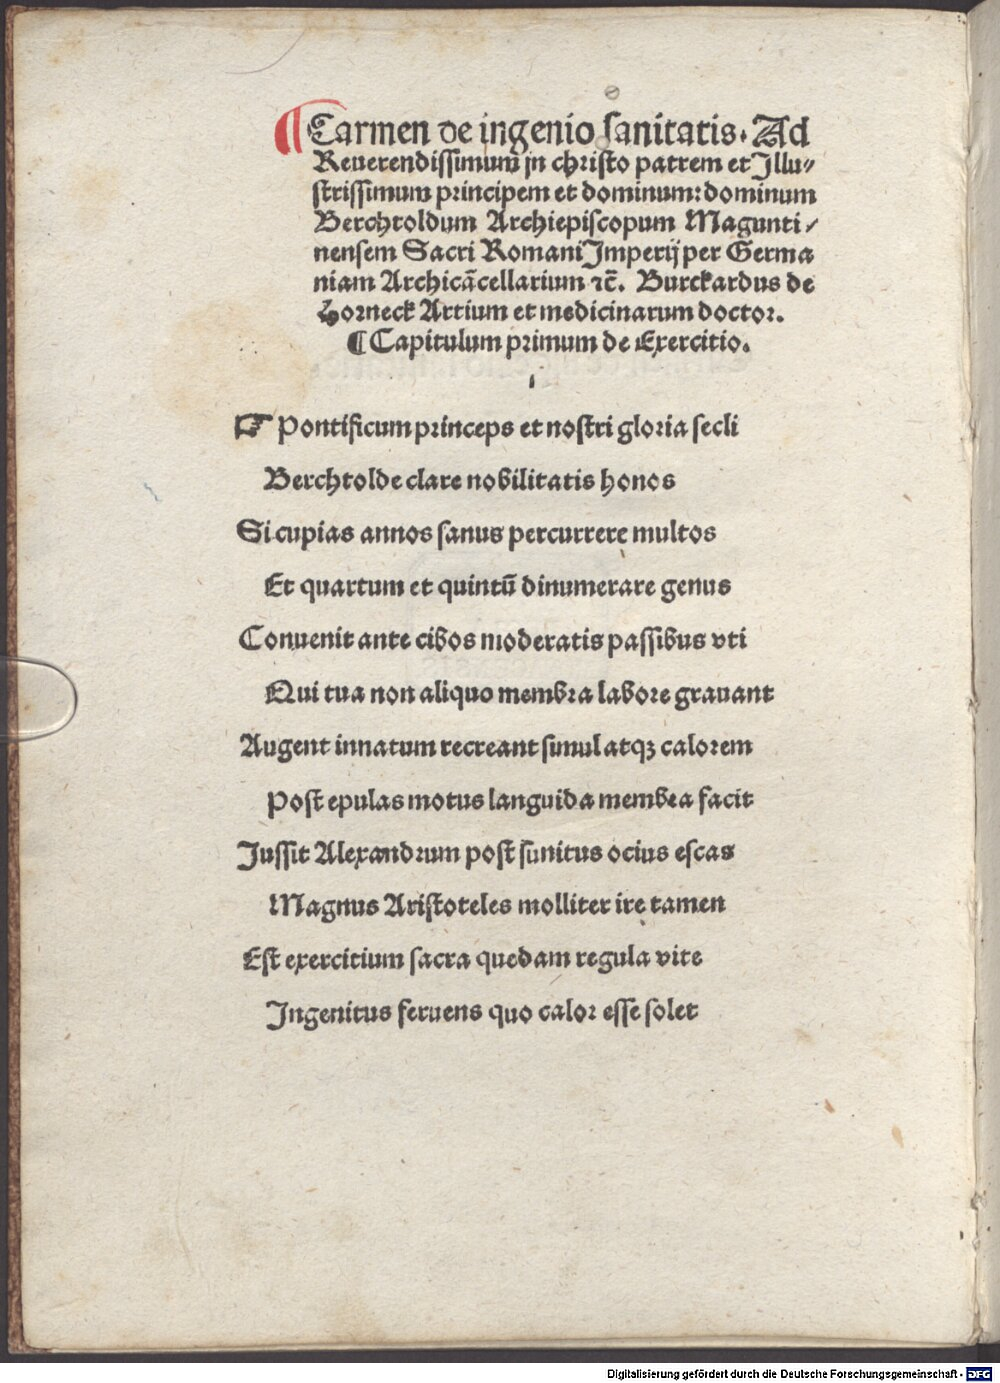 ¶ Carmen de ingenio sanitatis. Ad
Reuerendissimum jn christo patrem et Jllu⸗
strissimum principem et dominum: dominum
Berchtoldum Archiepiscopum Magunti⸗
nensem Sacri Romani Jmperij per Germa
niam Archicācellarium ⁊c̄. Burckardus de
Horneck Artium et medicinarum doctor.
¶ Capitulum primum de Exercitio.
☞ Pontificum princeps et nostri gloria secli
Berchtolde clare nobilitatis honos
Si cupias annos sanus percurrere multos
Et quartum et quintū dinumerare genus
Conuenit ante cibos moderatis passibus vti
Qui tua non aliquo membra labore grauant
Augent innatum recreant simul atqꝫ calorem
Post epulas motus languida membra facit
Jussit Alexandrum post sunitus ocius escas
Magnus Aristoteles molliter ire tamen
Est exercitium sacra quedam regula vite
Jngenitus feruens quo calor esse solet
Digitalisierung gefördert durch die Deutsche Forschungsgemeinschaft - DFG